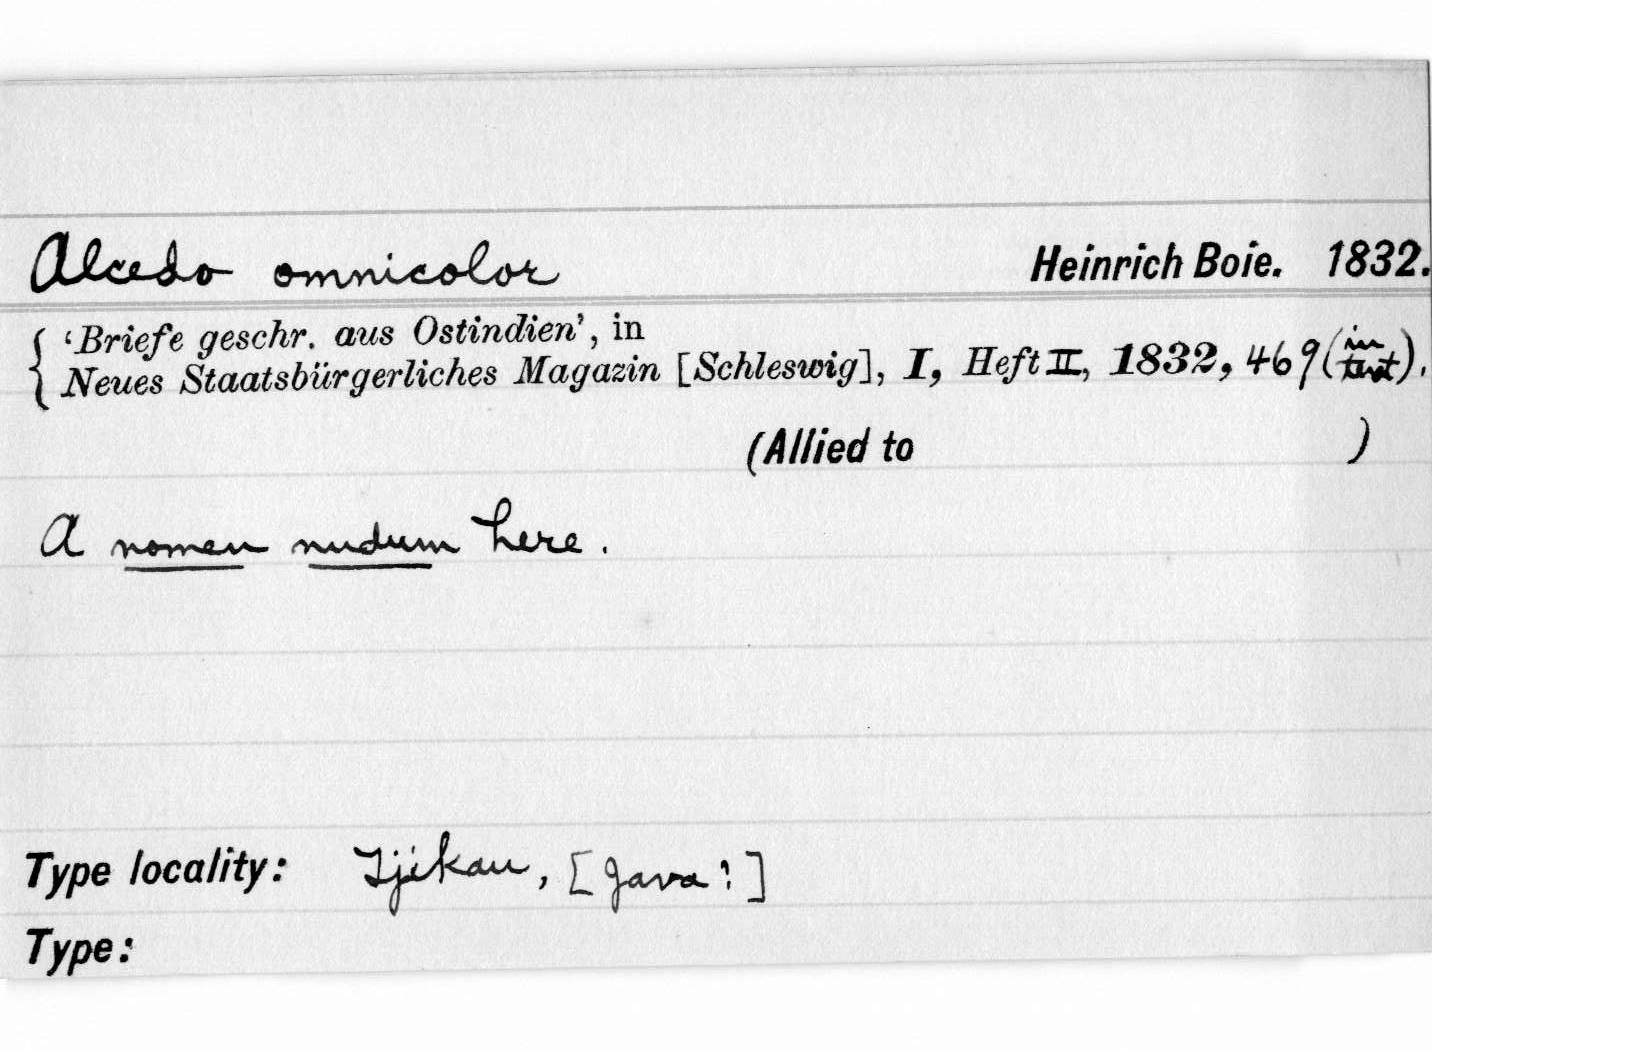 Alcedo omnicolor Heinrich Boie. 1832.
'Briefe geschr. aus Ostindien', in
Neues Staatsbürgerliches Magazin [Schleswig], I, Heft II, 1832, 469 (in text).
(Allied to )
A nomen nudum here.
Type locality: Tjikau, [Java?]
Type: